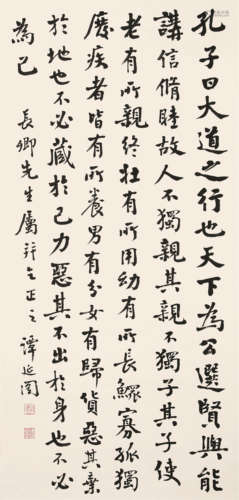 孔子曰大道之行也天下為公選賢與能
講信脩睦故人不獨親其親不獨子其子使
老有所親終壮有所用幼有所長鰥寡孤獨
廢疾者皆有所養男有分女有歸貨惡其棄
於地也不必藏於己力惡其不出於身也不必
為己 長卿先生屬 正之 譚延闓